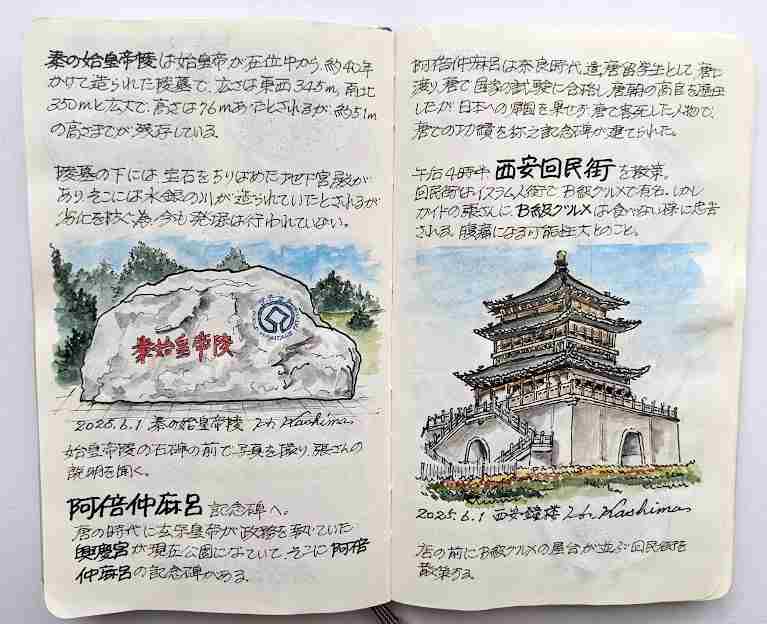 秦の始皇帝陵は始皇帝が在位中から、約40年
かけて造られた陵墓で、広さは東西345m, 南北
350mと広大で、高さは76mあったとされるが、約51m
の高さまでが残存している。
陵墓の下には、宝石をちりばめた地下宮殿が
ありそこには水銀の川が造られていたとされるが
劣化を防ぐ為、今も発掘は行われていない。
秦始皇帝陵
2025.6.1 秦の始皇帝陵 Kashima
始皇帝陵の石碑の前で写真を撮り、張さんの
説明を聞く。
阿倍仲麻呂 記念碑へ。
唐の時代に玄宗皇帝が政務を執っていた
興慶宮が現在公園になっていて、そこに阿倍
仲麻呂の記念碑がある。
阿倍仲麻呂は奈良時代、遣唐留学生として唐に
渡り、唐で国家の試験に合格し、唐朝の高官を歴任
したが、日本への帰国を果せず、唐で客死した人物で、
唐での功績を称え記念碑が建てられた。
午后4時半 西安回民街 を散策。
回民街はイスラム人街でB級グルメで有名。しかし
ガイドの張さんに、B級グルメは食べない様に忠告
される。腹痛になる可能性大とのこと。
2025.6.1 西安鐘楼 Kashima
店の前にB級グルメの屋台が並ぶ回民街を
散策する。